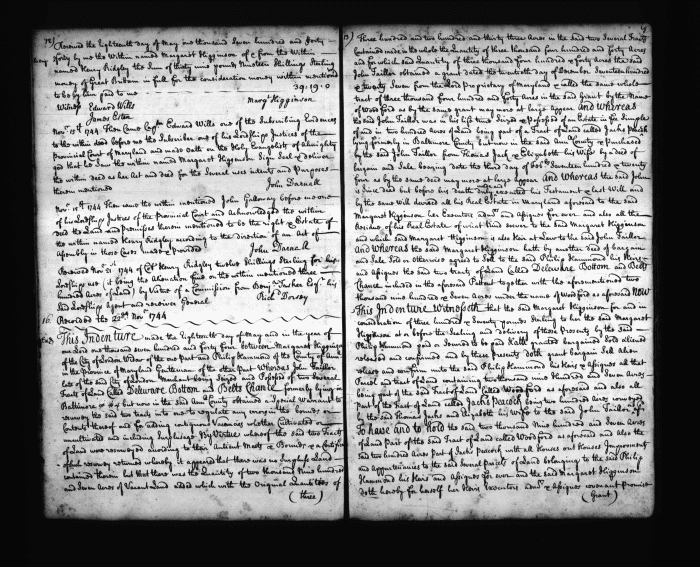 Received the Eighteenth day of May one thousand Seven hundred and forty
four by me the within named Margaret Higginson of & from the Within
named Henry Ridgley the Sum of thirty nine pounds Nineteen Shillings Sterling
money of Great Britain in full for the consideration money within mentioned
to be by him paid to me
39:19:0
Witness Edward Wills
Margt Higginson
James Esten
Novr 15th 1744 Then came Capt Edward Wills one of the Subscribing Evidences
to the within deed before me the Subscriber one of his Lordships Justices of the
Provincial Court of Maryland and made Oath on the Holy Evangelists of Almighty
God that he Saw the within named Margaret Higginson Sign Seal & deliver
the within deed as her Act and deed for the Several uses intents and Purposes
therein mentioned
John Darnall
Novr 15th 1744 Then came the within mentioned John Galloway before me one
of his Lordships Justices of the Provincial Court and Acknowledged the within
deed the Land and premises therein mentioned to be the right & Estate of
the within named Henry Ridgley according to the direction of an Act of
Assembly in those Cases made & provided
John Darnall
Received Novr 21st 1744 of Col Henry Ridgley twelve Shillings Sterling for his
Lordships use (it being the Alienation fine on the within mentioned three
hundred Acres of Land) by Virtue of a Commission from Benja Tasker Esqr his
said Lordships Agent and receiver General
Richd Dorsey
Recorded the 22d Novr 1744
This Indenture made the Eighteenth day of May and in the year of
our Lord one thousand Seven hundred and forty four Between Margaret Higginson
of the City of London Widow of the one part and Philip Hammond of the County of Ann
in the Province of Maryland Gentleman of the other part Whereas John Taillor
late of the said City of London
Tracts of Land Called Delaware Bottom and Betts Chance formerly lying in
Baltimore & now in the said Ann County obtained a Special Warrant to
resurvey the said two tracts into one to regulate any errors in the bounds and
Contents thereof and for adding contiguous Vacancies whether Cultivated or
uncultivated and including Surplusage By Virtue whereof the said two Tracts
of Land were resurveyed according to their Antient Metes & Bounds & a Certificate
of such resurvey returned whereby it appeared that there was no Surplus Land
contained therein but that there was the Quantity of two thousand Nine hundred
and Seven Acres of Vacant Land added which with the Original Quantities of
(three)
Three hundred and two hundred and thirty three Acres in the said two Several Tracts
Contained made in the whole the Quantity of three thousand four hundred and forty Acres
and for which said Quantity of three thousand four hundred & forty Acres the said
John Taillor obtained a grant dated the twentyth day of December Seventeen hundred
& twenty Seven from the Lord Proprietary of Maryland & called the whole
tract of three thousand four hundred and forty Acres in the said Grant by the Name
of Woodford as by the same grant may more at large appear And Whereas
the said John Taillor was in his life time Seized & Possessed of an Estate in fee Simple
of and in two hundred Acres of Land being part of a Tract of Land called Jacks Peacock
lying formerly in Baltimore County but now in the said Ann County & Purchased
by the said John Taillor from Thomas Jacks & Elizabeth his Wife by deed of
bargain and Sale bearing date the third day of Seventeen hundred & twenty
four as by the same deed may more at large appear And Whereas the said John
is Since dead but before his death duly executed his Testament & last Will and
by the same Will devised all his Real Estate in Maryland aforesaid to the said
Margaret Higginson her Executors admrs and Assigns for ever and also all the
Residue of his Real Estate of what kind soever to the said Margaret Higginson
and which said Margaret Higginson is also Heir at Law to the said John Taillor
And Whereas the said Margaret Higginson hath by another deed of bargain
and Sale Sold or otherwise agreed to Sell to the said Philip Hammond his Heirs
and Assigns the said two tracts of Land Called Delaware Bottom and Betts
Chance included in the aforesaid Patent together with the aforementioned two
thousand nine hundred & Seven Acres under the name of Woodford as aforesaid Now
This Indenture Witnesseth that the said Margaret Higginson for and in
consideration of three hundred & Ninety pounds Sterling to her the said Margaret
Higginson at or before the Sealing and delivery of these Presents by the said
Philip Hammond paid or Secured to be paid Hath granted bargained Sold aliened
released and confirmed and by these presents doth grant bargain Sell alien
release and confirm unto the said Philip Hammond his Heirs & Assigns all that
Parcel and tract of Land containing two thousand nine hundred and Seven Acres
being part of the said Tract of Land Called Woodford as aforesaid and also all
part of the tract of Land called Jacks Peacock being two hundred Acres conveyed
by the said Thomas Jacks and Elizabeth his Wife to the said John Taillor as aforesd
To have and to hold the said two thousand Nine hundred and Seven Acres
of Land Part of the said Tract of Land called Woodford as aforesaid and also the
said two hundred Acres part of Jacks Peacock with all Houses out Houses Improvements
and appurtenances to the said several parcels of Land belonging to the said Philip
Hammond his Heirs and Assigns for ever and the said Margaret Higginson
doth hereby for herself her Heirs Executors admrs & Assigns covenant promise
(Grant)